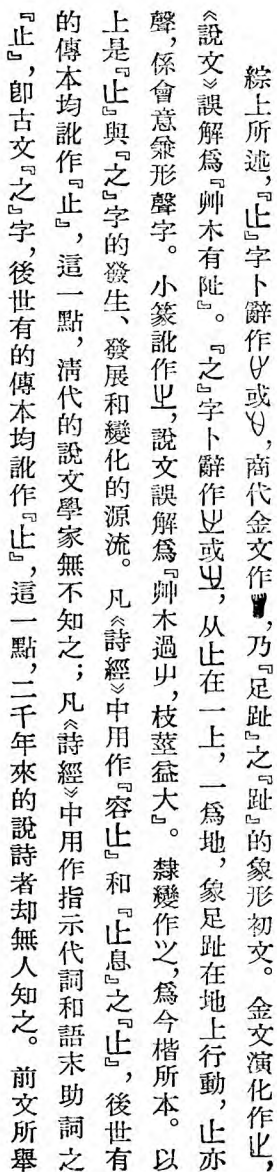 綜上所述，『止』字卜辭作𠙵或，商代金文作，乃『足趾』之『趾』的象形初文。金文演化作止，
《說文》誤解爲『艸木有阯』。『之』字卜辭作㞢或㞢，从止在一上，一爲地，象足趾在地上行動，止亦
聲，係會意兼形聲字。小篆訛作㞢，說文誤解爲『艸木過屮，枝莖益大』。隸變作㞢，爲今楷所本。以
上是『止』與『之』字的發生、發展和變化的源流。凡《詩經》中用作『容止』和『止息』之『止』，後世有
的傳本均訛作『止』，這一點，清代的說文學家無不知之；凡《詩經》中用作指示代詞和語末助詞之
『止』，卽古文『之』字，後世有的傳本均訛作『止』，這一點，二千年來的說詩者却無人知之。前文所舉